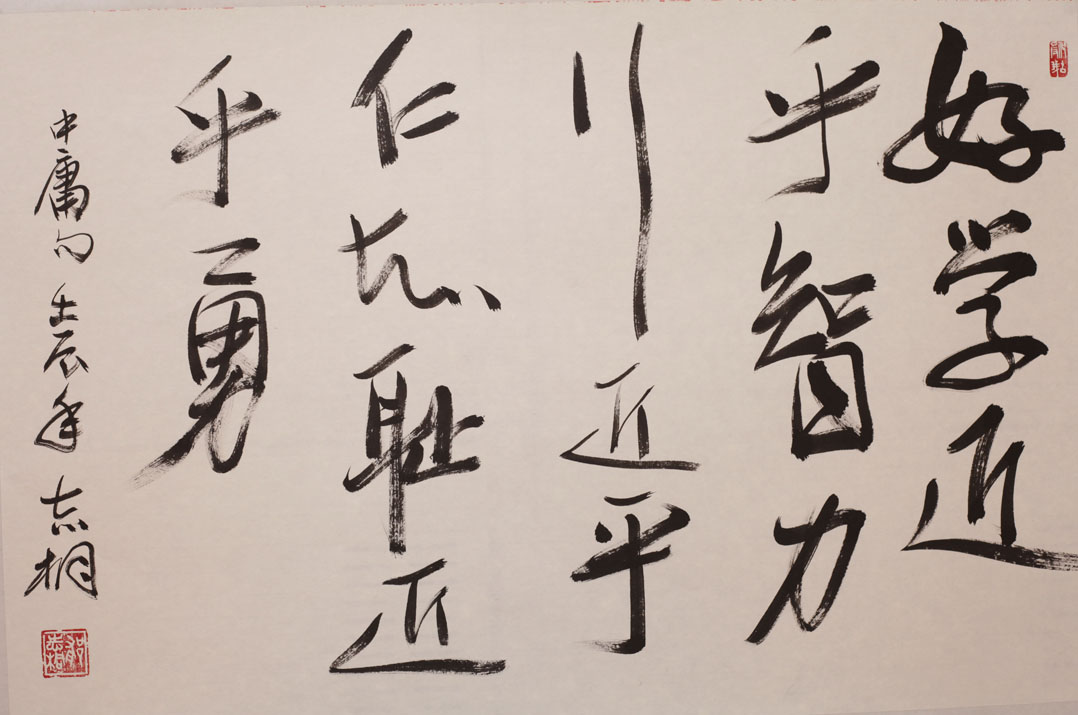 好学近
乎智力
行近乎
仁知耻近
乎勇
中庸句 壬辰年 志桐